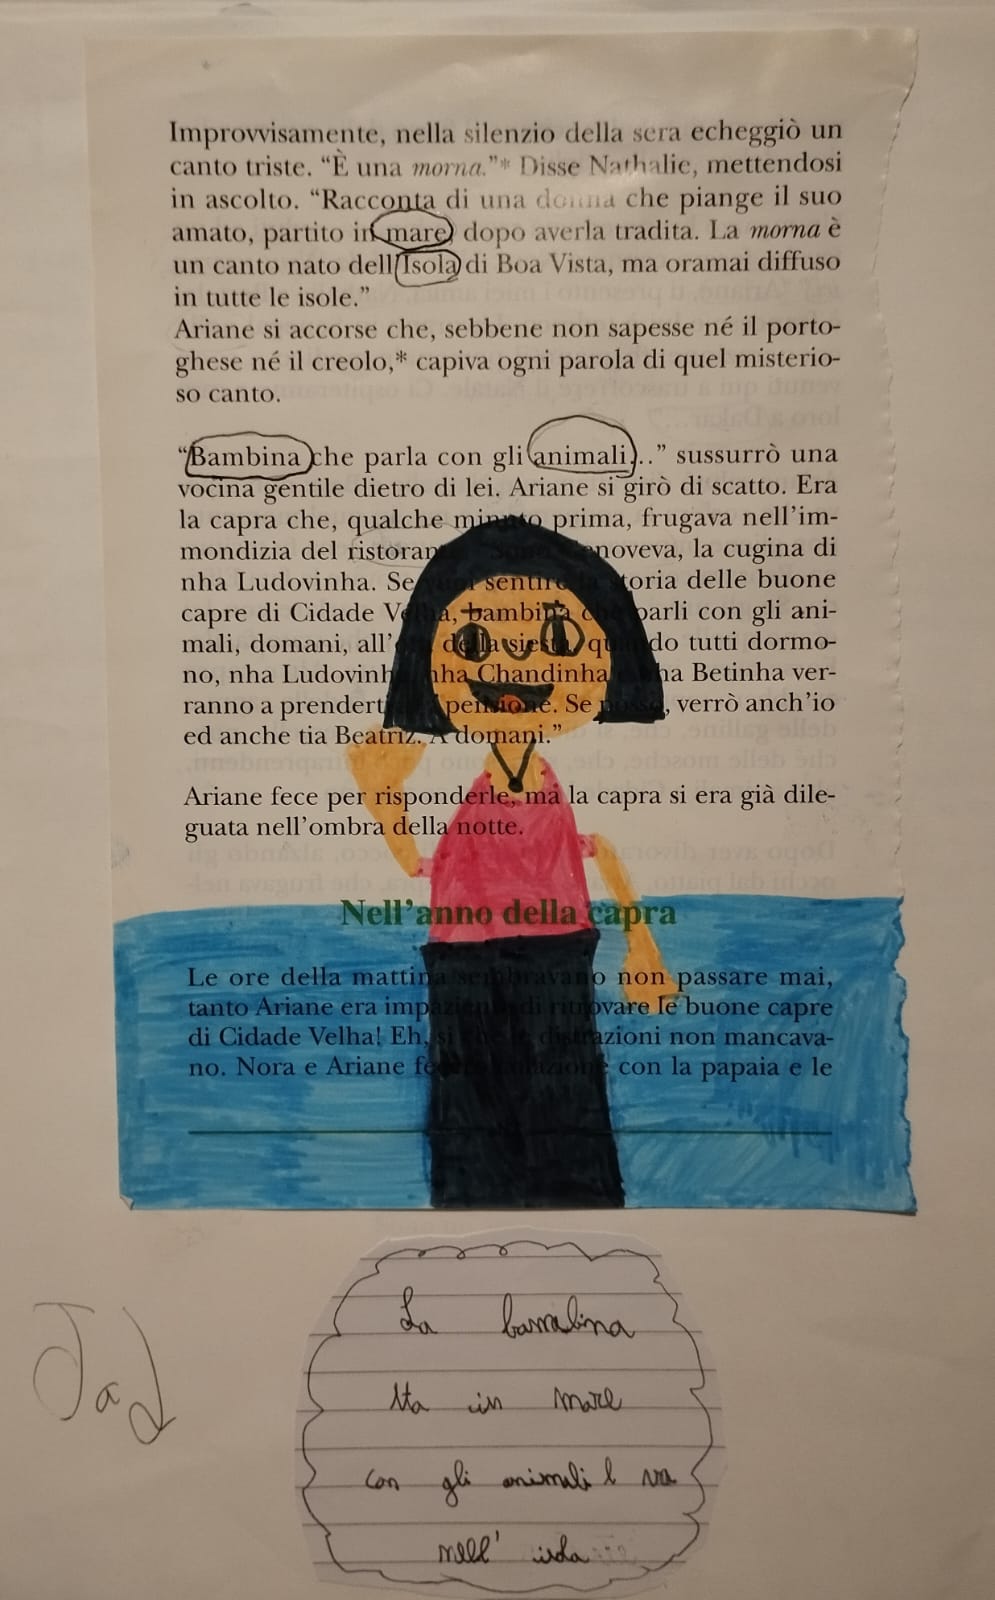 Improvvisamente, nella silenzio della sera echeggiò un
canto triste. “È una morna.”* Disse Nathalie, mettendosi
in ascolto. “Racconta di una donna che piange il suo
amato, partito in mare, dopo averla tradita. La morna è
un canto nato dell'Isola di Boa Vista, ma oramai diffuso
in tutte le isole.”
Ariane si accorse che, sebbene non sapesse né il porto-
ghese né il creolo,* capiva ogni parola di quel misterio-
so canto.
“Bambina che parla con gli animali...” sussurrò una
vocina gentile dietro di lei. Ariane si girò di scatto. Era
la capra che, qualche minuto prima, frugava nell'im-
mondizia del ristorante. “Sono Genoveva, la cugina di
nha Ludovinha. Se vuoi sentire la storia delle buone
capre di Cidade Velha, bambina che parli con gli ani-
mali, domani, all'ora della siesta, quando tutti dormo-
no, nha Ludovinha, nha Chandinha e nha Betinha ver-
ranno a prenderti alla pensione. Se posso, verrò anch'io
ed anche tia Beatriz. A domani.”
Ariane fece per risponderle, ma la capra si era già dile-
guata nell'ombra della notte.
Nell'anno della capra
Le ore della mattina sembravano non passare mai,
tanto Ariane era impaziente di ritrovare le buone capre
di Cidade Velha! Eh, sì che le distrazioni non mancava-
no. Nora e Ariane fecero colazione con la papaia e le
La bambina
sta in mare
con gli animali e va
nell' isola
Jad